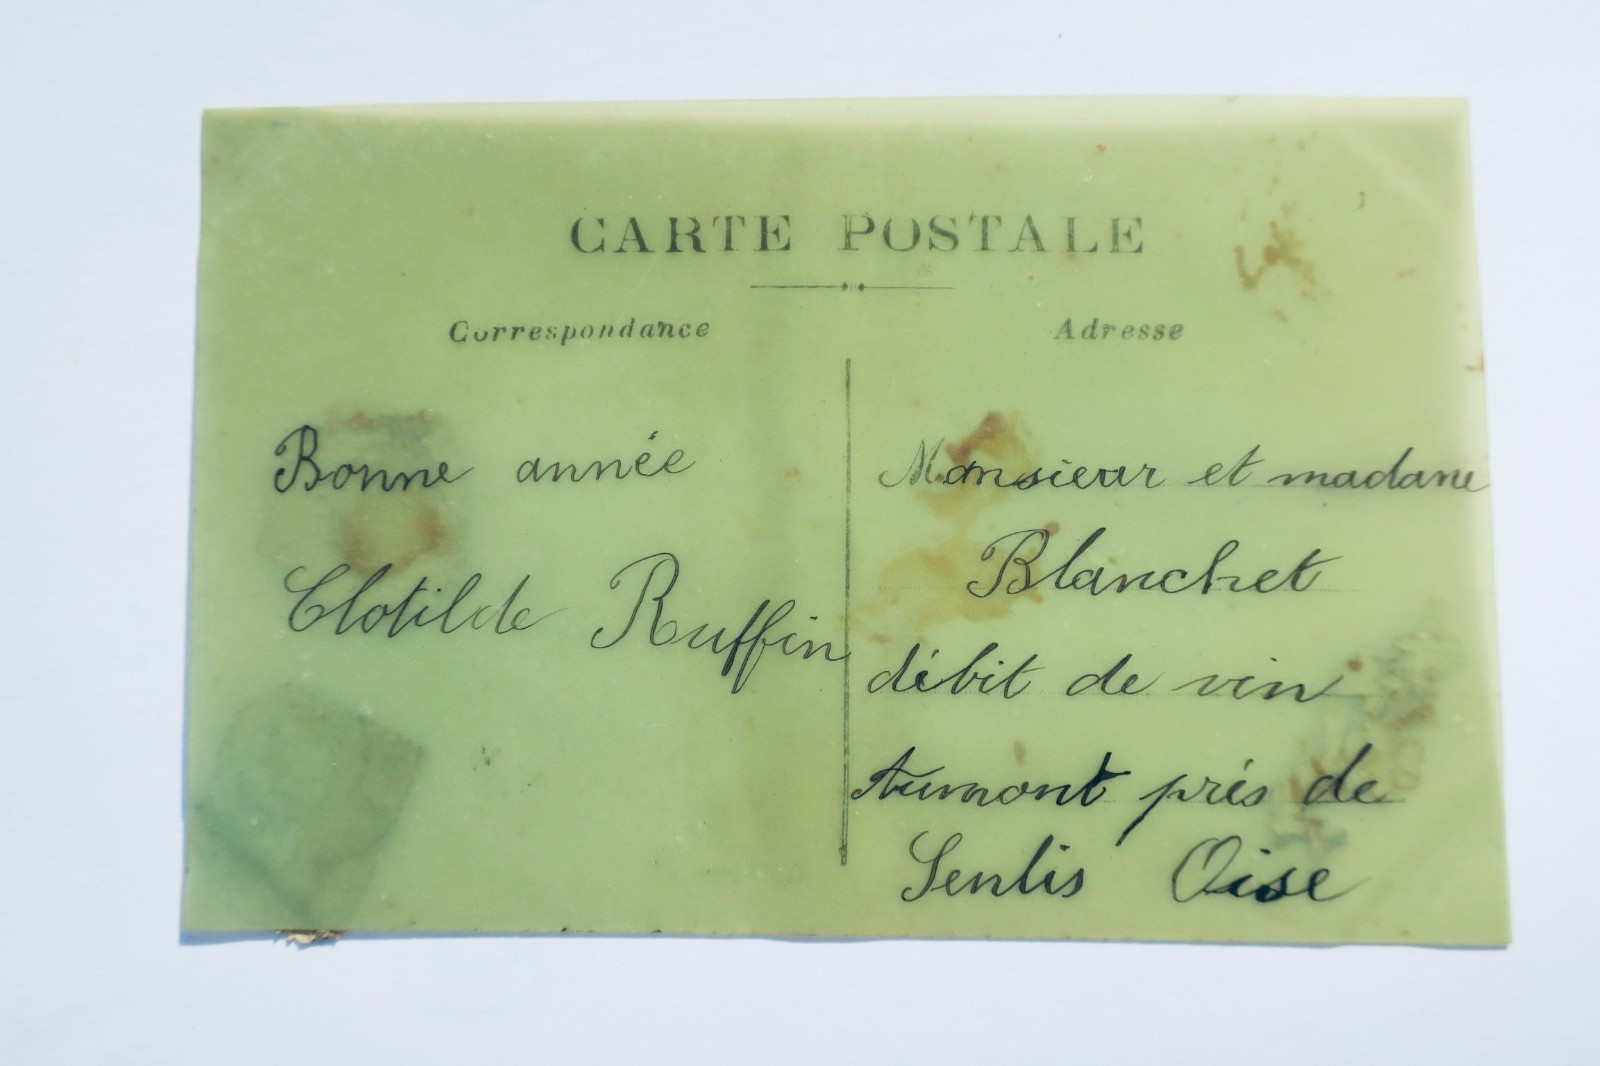 CARTE POSTALE
Correspondance
Bonne année
Clotilde Ruffin
Adresse
Monsieur et madame
Blanchet
débit de vin
Aumont près de
Senlis Oise